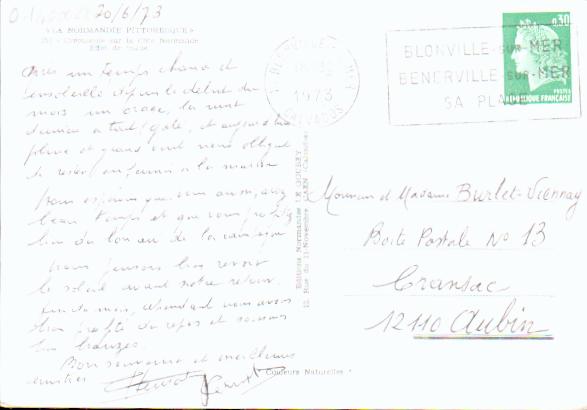 20/6/73
"LA NORMANDIE PITTORESQUE"
Crépuscule sur la Côte Normande
Effet de
Après un temps chaud et
ensoleillé depuis le début du
mois un orage, la nuit
dernière a tout gâté, et aujourd'hui
pluie et grand vent nous oblige
à rester enfermés à la maison
nous espérons que vous aussi, avez
beau temps et que vous profitez
bien du bon air de la campagne
nous pensons bien revoir
le soleil avant notre retour
fin du mois, cependant nous avons
bien profité du repos et sommes
bien bronzés.
Bon souvenir et meilleures
amitiés
Editions Normandes LE GOUBEY
12, Rue du 11-Novembre CAEN (Calvados)
"Couleurs Naturelles"
1973
CALVADOS
BLONVILLE-SUR-MER
BENERVILLE-SUR-MER
SA PLAGE
0,30
POSTES
REPUBLIQUE FRANÇAISE
Monsieur et Madame Burlet-Viennay
Boite Postale No 13
Cransac
12110 Aubin